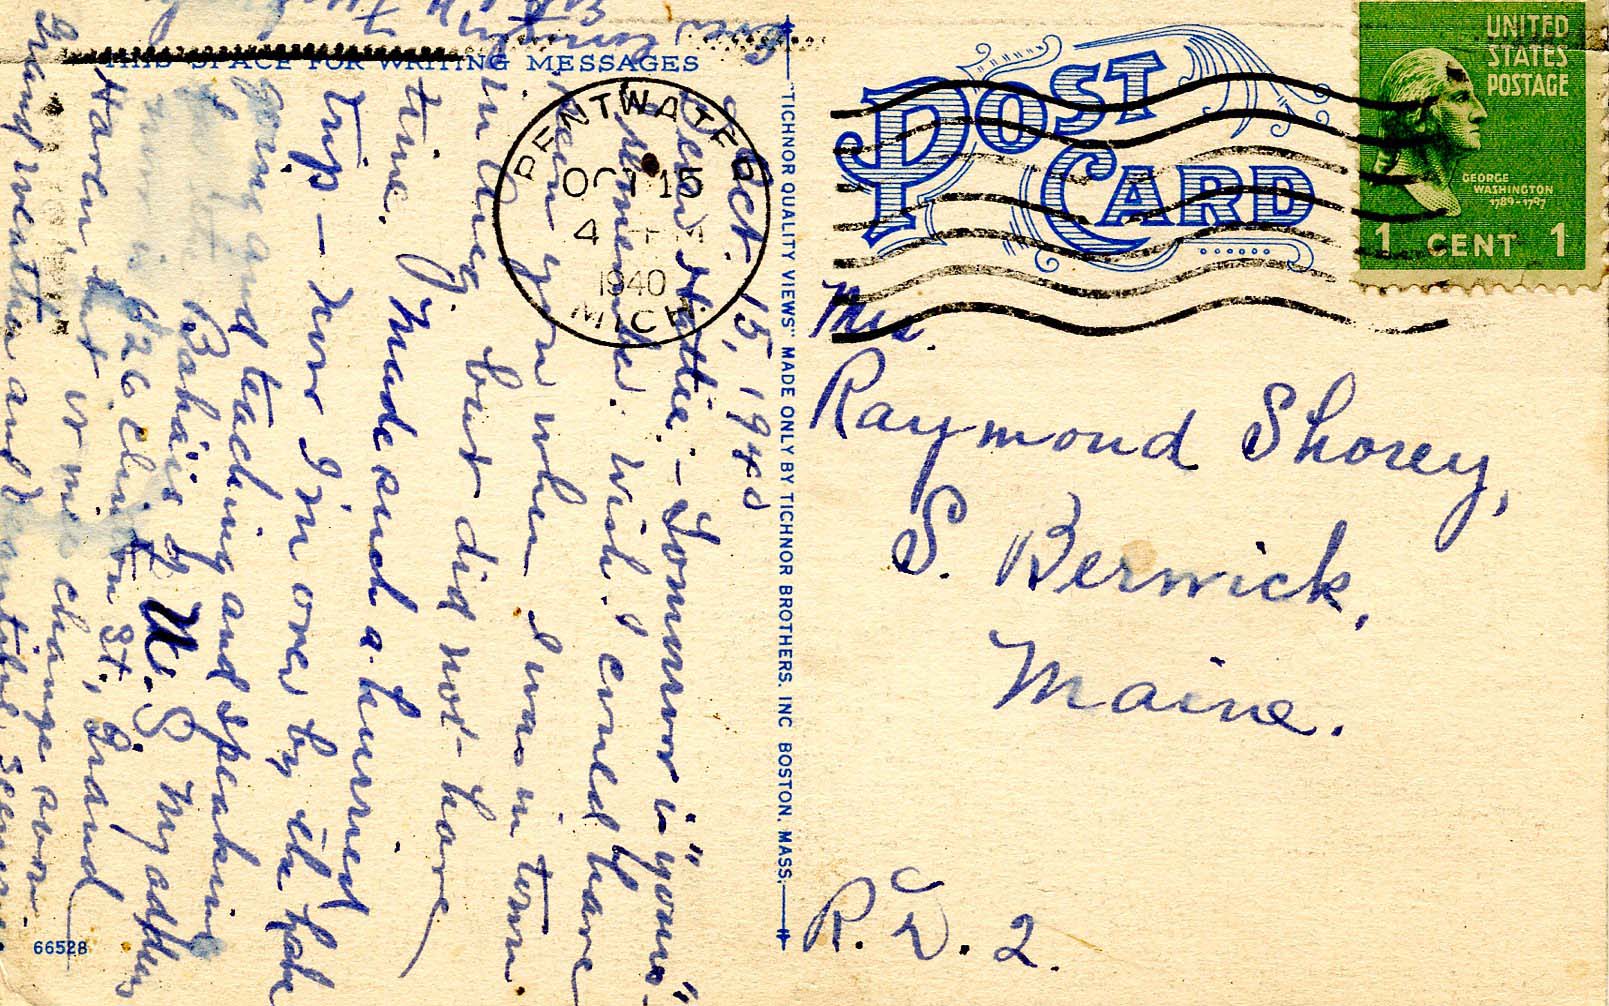 THIS SPACE FOR WRITING MESSAGES
POST
CARD
UNITED
STATES
POSTAGE
GEORGE
WASHINGTON
1789-1797
1 CENT 1
PENTWATER
OCT 15
4
1940
MICH.
"TICHNOR QUALITY VIEWS" MADE ONLY BY TICHNOR BROTHERS. INC BOSTON. MASS.
Oct. 15, 1940
Dear Hattie: - Tomorrow is "yours"
I remember. Wish I could have
seen you when I was in town
in Aug. but did not have
time. Made such a hurried
trip - Now I'm over by the lake
going and teaching and speaking
Bahá'is of U.S. My address
now is 626 Clinton St., Grand
Haven, but it may change soon.
Grand weather and beautiful scenery
Mrs.
Raymond Shorey,
S. Berwick,
Maine.
R.D. 2.
66528